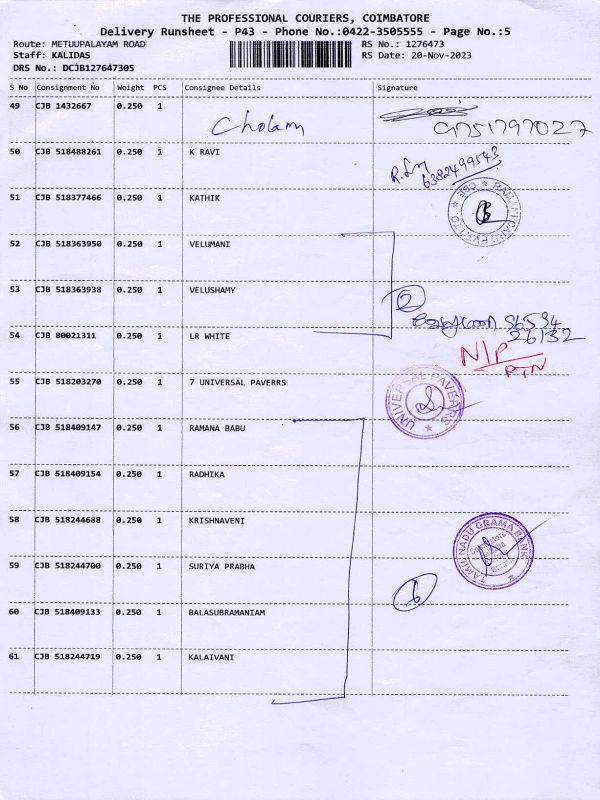 THE PROFESSIONAL COURIERS, COIMBATORE
Delivery Runsheet - P43 - Phone No.:0422-3505555 - Page No.:5
Route: METUUPALAYAM ROAD RS No.: 1276473
Staff: KALIDAS RS Date: 20-Nov-2023
DRS No.: DCJB127647305
S No Consignment No Weight PCS Consignee Details Signature
49 CJB 1432667 0.250 1
Cholam 9751797027
50 CJB 518488261 0.250 1 K RAVI
6382499543
51 CJB 518377466 0.250 1 KATHIK
RAMANI CARS PVT LTD. ★ CBE ★
52 CJB 518363950 0.250 1 VELUMANI
53 CJB 518363938 0.250 1 VELUSHAMY
2
56594
26132
54 CJB 80021311 0.250 1 LR WHITE
N/P
RTN
55 CJB 518203270 0.250 1 7 UNIVERSAL PAVERRS
UNIVERSAL PAVERRS ★
56 CJB 518409147 0.250 1 RAMANA BABU
57 CJB 518409154 0.250 1 RADHIKA
58 CJB 518244688 0.250 1 KRISHNAVENI
TAMIL NADU GRAMA BANK ★
59 CJB 518244700 0.250 1 SURIYA PRABHA
6
60 CJB 518409133 0.250 1 BALASUBRAMANIAM
61 CJB 518244719 0.250 1 KALAIVANI